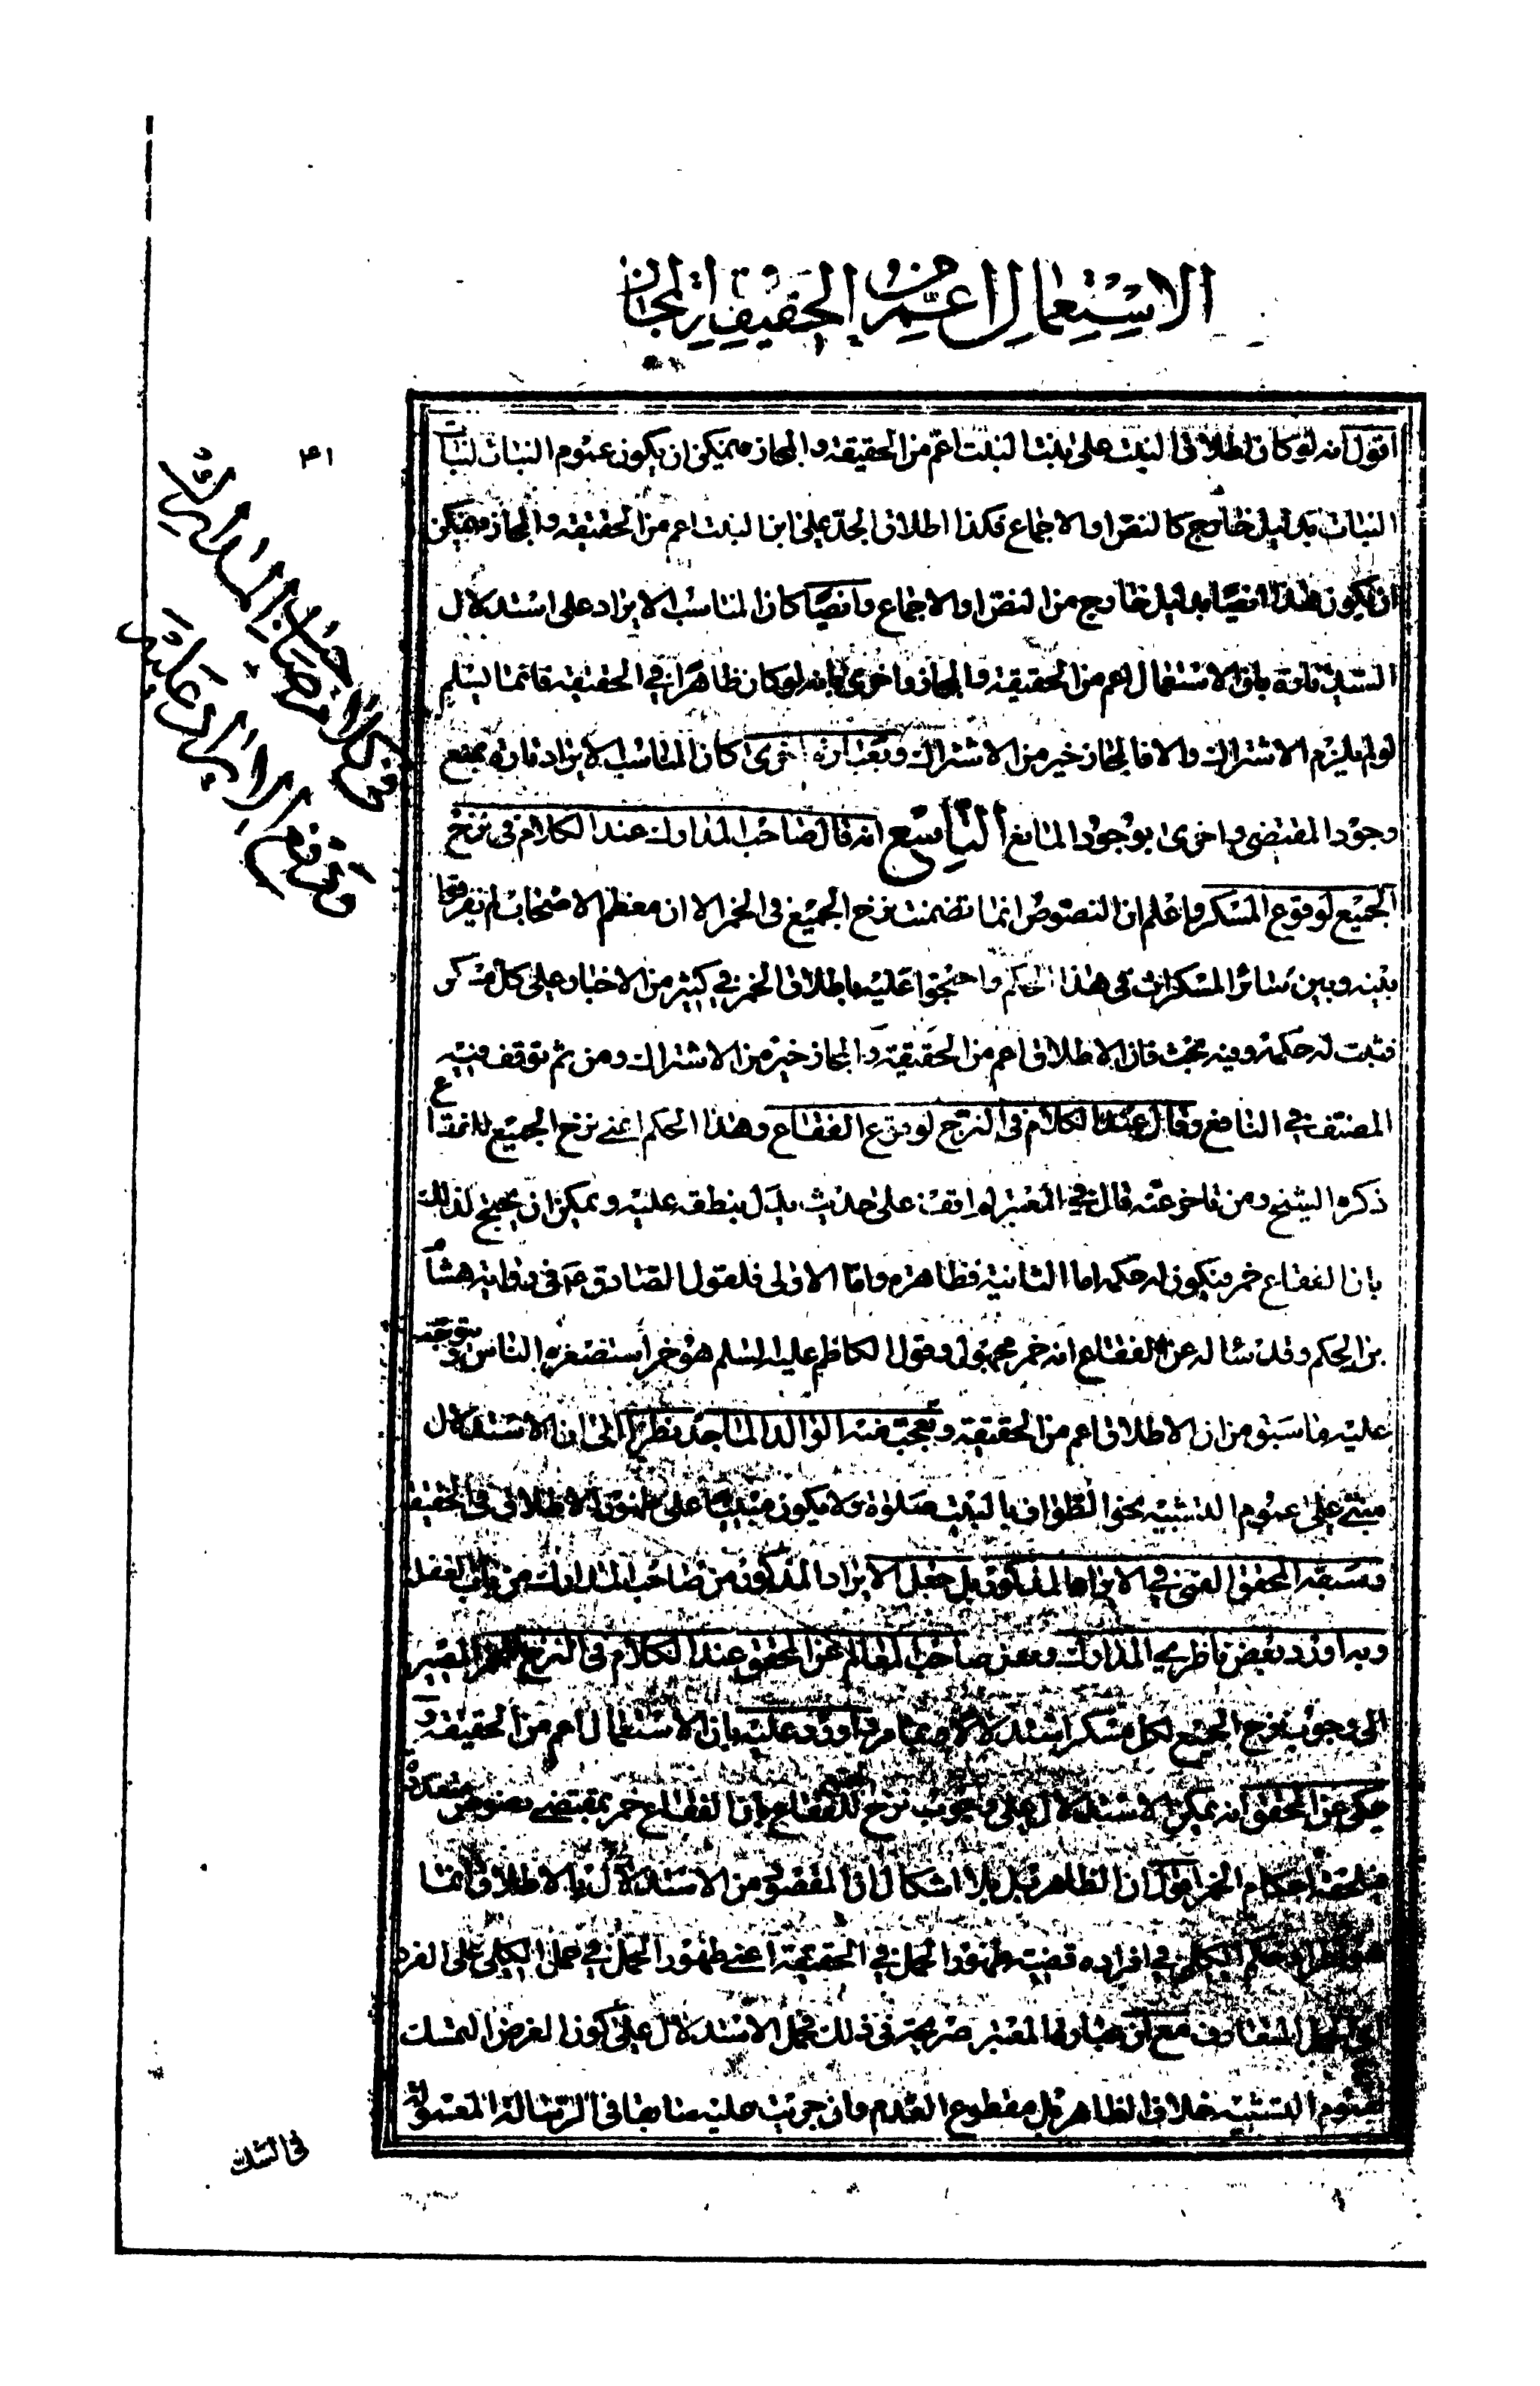 الاستعمال اعم من الحقيقة والمجاز
٤١
اقول انه لو كان اطلاق البنت على بنت البنت اعم من الحقيقة والمجاز فيمكن ان يكون عموم البنات لبنات
البنات بدليل خارج كالنص او الاجماع فكذا اطلاق الجد على ابن البنت اعم من الحقيقة والمجاز فيمكن
ان يكون هذا ايضا بدليل خارج من النص او الاجماع وايضا كان المناسب الايراد على استدلال
السيد تارة بان الاستعمال اعم من الحقيقة والمجاز واخرى بانه لو كان ظاهرا في الحقيقة فانما يسلم
لو لم يلزم الاشتراك والا فالمجاز خير من الاشتراك وبعبارة اخرى كان المناسب الايراد تارة بمنع
وجود المقتضى واخرى بوجود المانع التاسع انه قال صاحب المدارك عند الكلام في نزح
الجميع لوقوع المسكر واعلم ان النصوص انما تضمنت نزح الجميع في الخمر الا ان معظم الاصحاب لم يفرقوا
بينه وبين سائر المسكرات في هذا الحكم واحتجوا عليه باطلاق الخمر في كثير من الاخبار على كل مسكر
فثبت له حكمه وفيه بحث فان الاطلاق اعم من الحقيقة والمجاز خير من الاشتراك ومن ثم توقف فيه
المصنف في النافع وقال عند الكلام في النزح لوقوع الفقاع وهذا الحكم اعني نزح الجميع للفقاع
ذكره الشيخ ومن تاخر عنه قال في المعتبر لم اقف على حديث يدل بنطقه عليه ويمكن ان يحتج لذلك
بان الفقاع خمر فيكون له حكمه اما الثانية فظاهرة واما الاولى فلقول الصادق ع في رواية هشام
بن الحكم وقد ساله عن الفقاع انه خمر مجهول وقول الكاظم عليه السلم هو خمر استصغره الناس ويتوجه
عليه ما سبق من ان الاطلاق اعم من الحقيقة وتعجب منه الوالد الماجد نظرا الى ان الاستدلال
مبتني على عموم التشبيه نحو الطواف بالبيت صلوة ولا يكون مبتنيا على ظهور الاطلاق في الحقيقة
وسبقه المحقق القمي في الايراد المذكور بل جعل الايراد المذكور من صاحب المدارك من باب الغفلة
وبه اورد بعض ناظري المدارك وعن صاحب المعالم عن المحقق عند الكلام في النزح المصير
الى وجوب نزح الجميع لكل مسكر استدلالا بما مر واورد عليه بان الاستعمال اعم من الحقيقة و
حكى عن المحقق انه يمكن الاستدلال على وجوب نزح الجميع للفقاع بان الفقاع خمر بمقتضى نصوص متعددة
فيلحقه احكام الخمر اقول ان الظاهر بل بلا اشكال ان المقصود من الاستدلال بالاطلاق انما
هو اطراد حكم الكلي في افراده قضية ظهور الحمل في الحقيقة اعني ظهور الحمل في حمل الكلي على الفرد
اي الحمل المتعارف مع ان عبارة المعتبر صريحة في ذلك فحمل الاستدلال على كون الغرض التمسك
بعموم التشبيه خلاف الظاهر بل مقطوع العدم وان جريت عليه سابقا في الرسالة المعمولة
في الشك